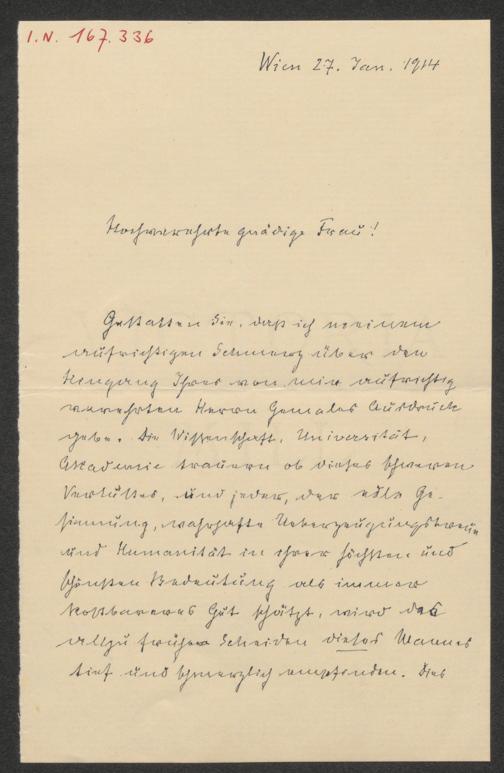 I.N. 167.336
Wien 27. Jan. 1914
Hochverehrte gnädige Frau!
Gestatten Sie, daß ich meinem
aufrichtigen Schmerz über den
Hingang Ihres von mir aufrichtig
verehrten Herrn Gemales Ausdruck
gebe. Die Wissenschaft, Universität,
Akademie trauern ob dieses schweren
Verlustes, und jeder, der edle Ge-
sinnung, wahrhafte Ueberzeugungstreue
und Humanität in ihrer höchsten und
schönsten Bedeutung als immer
kostbareres Gut schätzt, wird das
allzu frühe Scheiden dieses Mannes
tief und schmerzlich empfinden. Dies